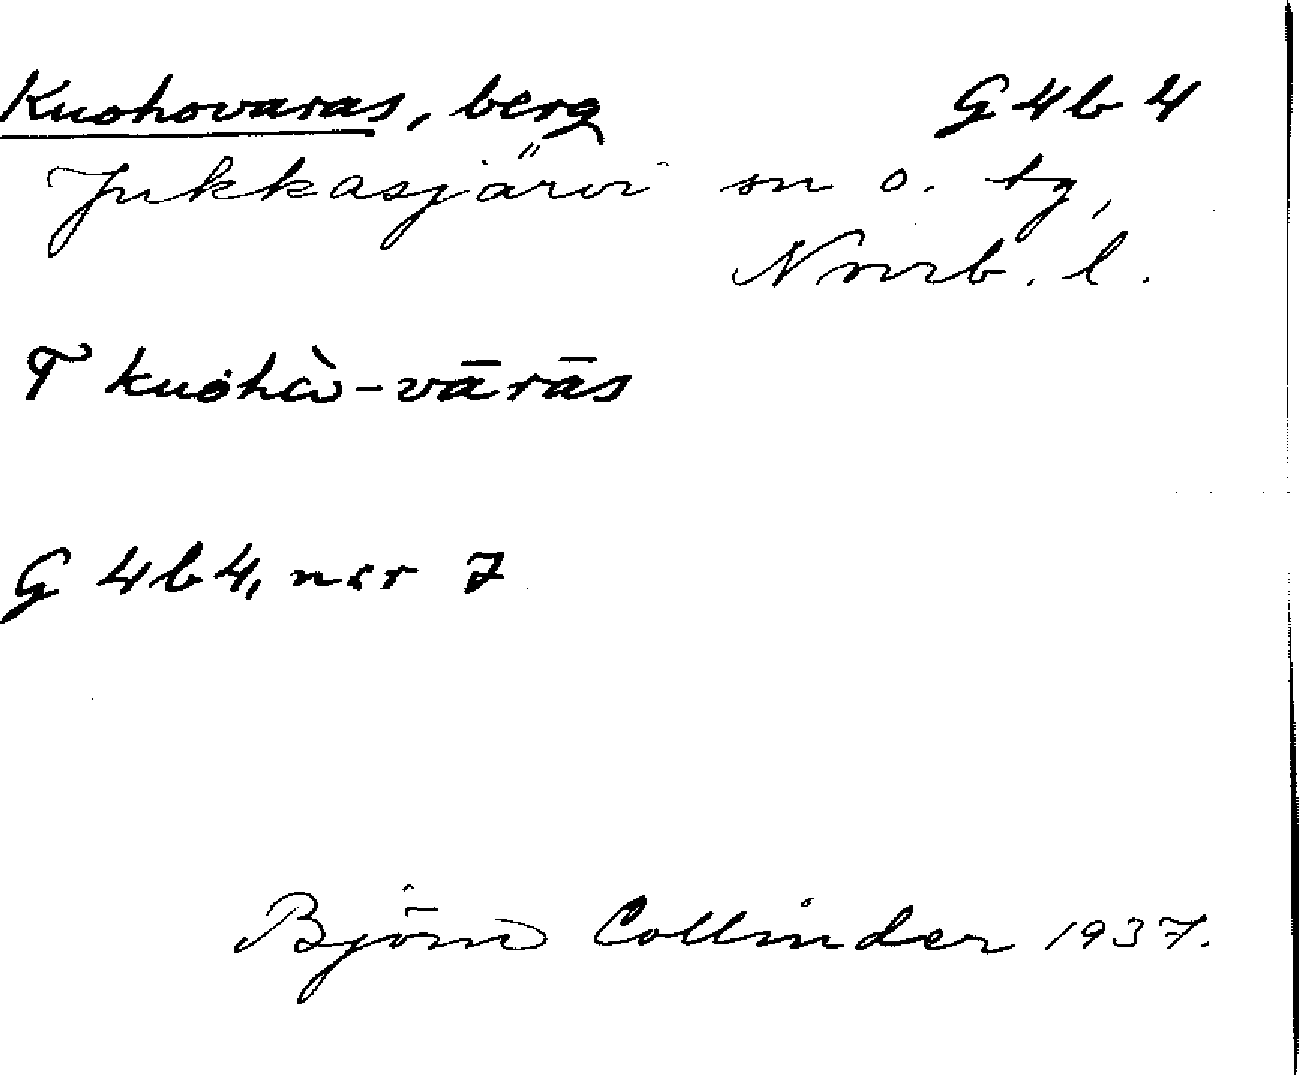 Kuohovaras, berg G 4 b 4
Jukkasjärvi sn o. tg,
Norrb. l.
T kuọhὼ-vārās
G 4 b 4, nər 7
Björn Collinder 1937.